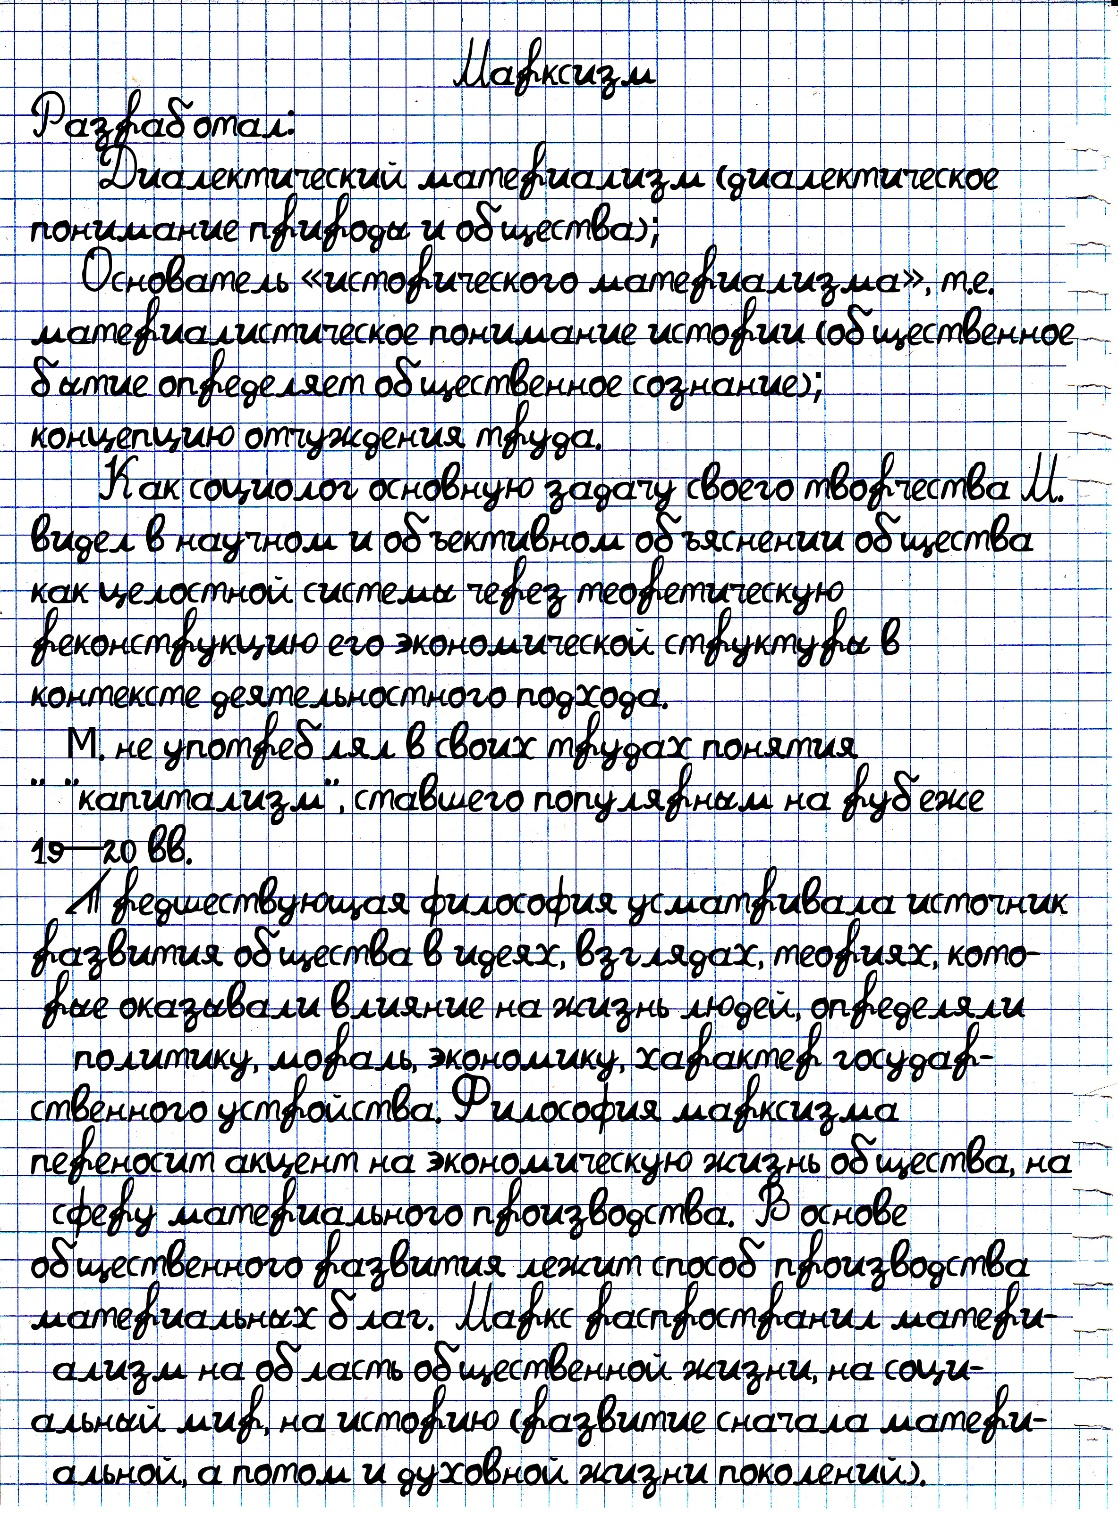 Марксизм
Разработал:
Диалектический материализм (диалектическое
понимание природы и общества);
Основатель «исторического материализма», т.е.
материалистическое понимание истории (общественное
бытие определяет общественное сознание);
концепцию отчуждения труда.
Как социолог основную задачу своего творчества М.
видел в научном и объективном объяснении общества
как целостной системы через теоретическую
реконструкцию его экономической структуры в
контексте деятельностного подхода.
М. не употреблял в своих трудах понятия
" "капитализм", ставшего популярным на рубеже
19—20 вв.
Предшествующая философия усматривала источник
развития общества в идеях, взглядах, теориях, кото-
рые оказывали влияние на жизнь людей, определяли
политику, мораль, экономику, характер государ-
ственного устройства. Философия марксизма
переносит акцент на экономическую жизнь общества, на
сферу материального производства. В основе
общественного развития лежит способ производства
материальных благ. Маркс распространил матери-
ализм на область общественной жизни, на соци-
альный мир, на историю (развитие сначала матери-
альной, а потом и духовной жизни поколений).